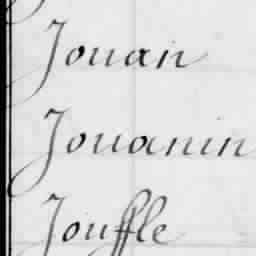 Jouan
Jouanin
Jouffle